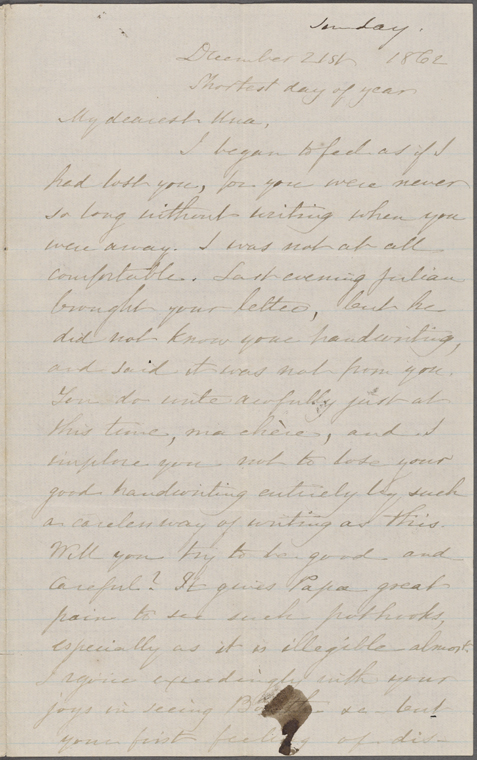 Sunday.
December 21st 1862
Shortest day of year
My dearest Una,
I began to feel as if I
had lost you, for you were never
so long without writing when you
were away. I was not at all
comfortable. Last evening Julian
brought your letter, but he
did not know your handwriting,
and said it was not from you.
You do write awfully just at
this time, ma chère, and I
implore you not to lose your
good handwriting entirely by such
a careless way of writing as this.
Will you try to be good and
careful? It gives Papa great
pain to see such pothooks,
especially as it is illegible almost.
I rejoice exceedingly with your
joys in seeing &c - but
your first feeling of dis-